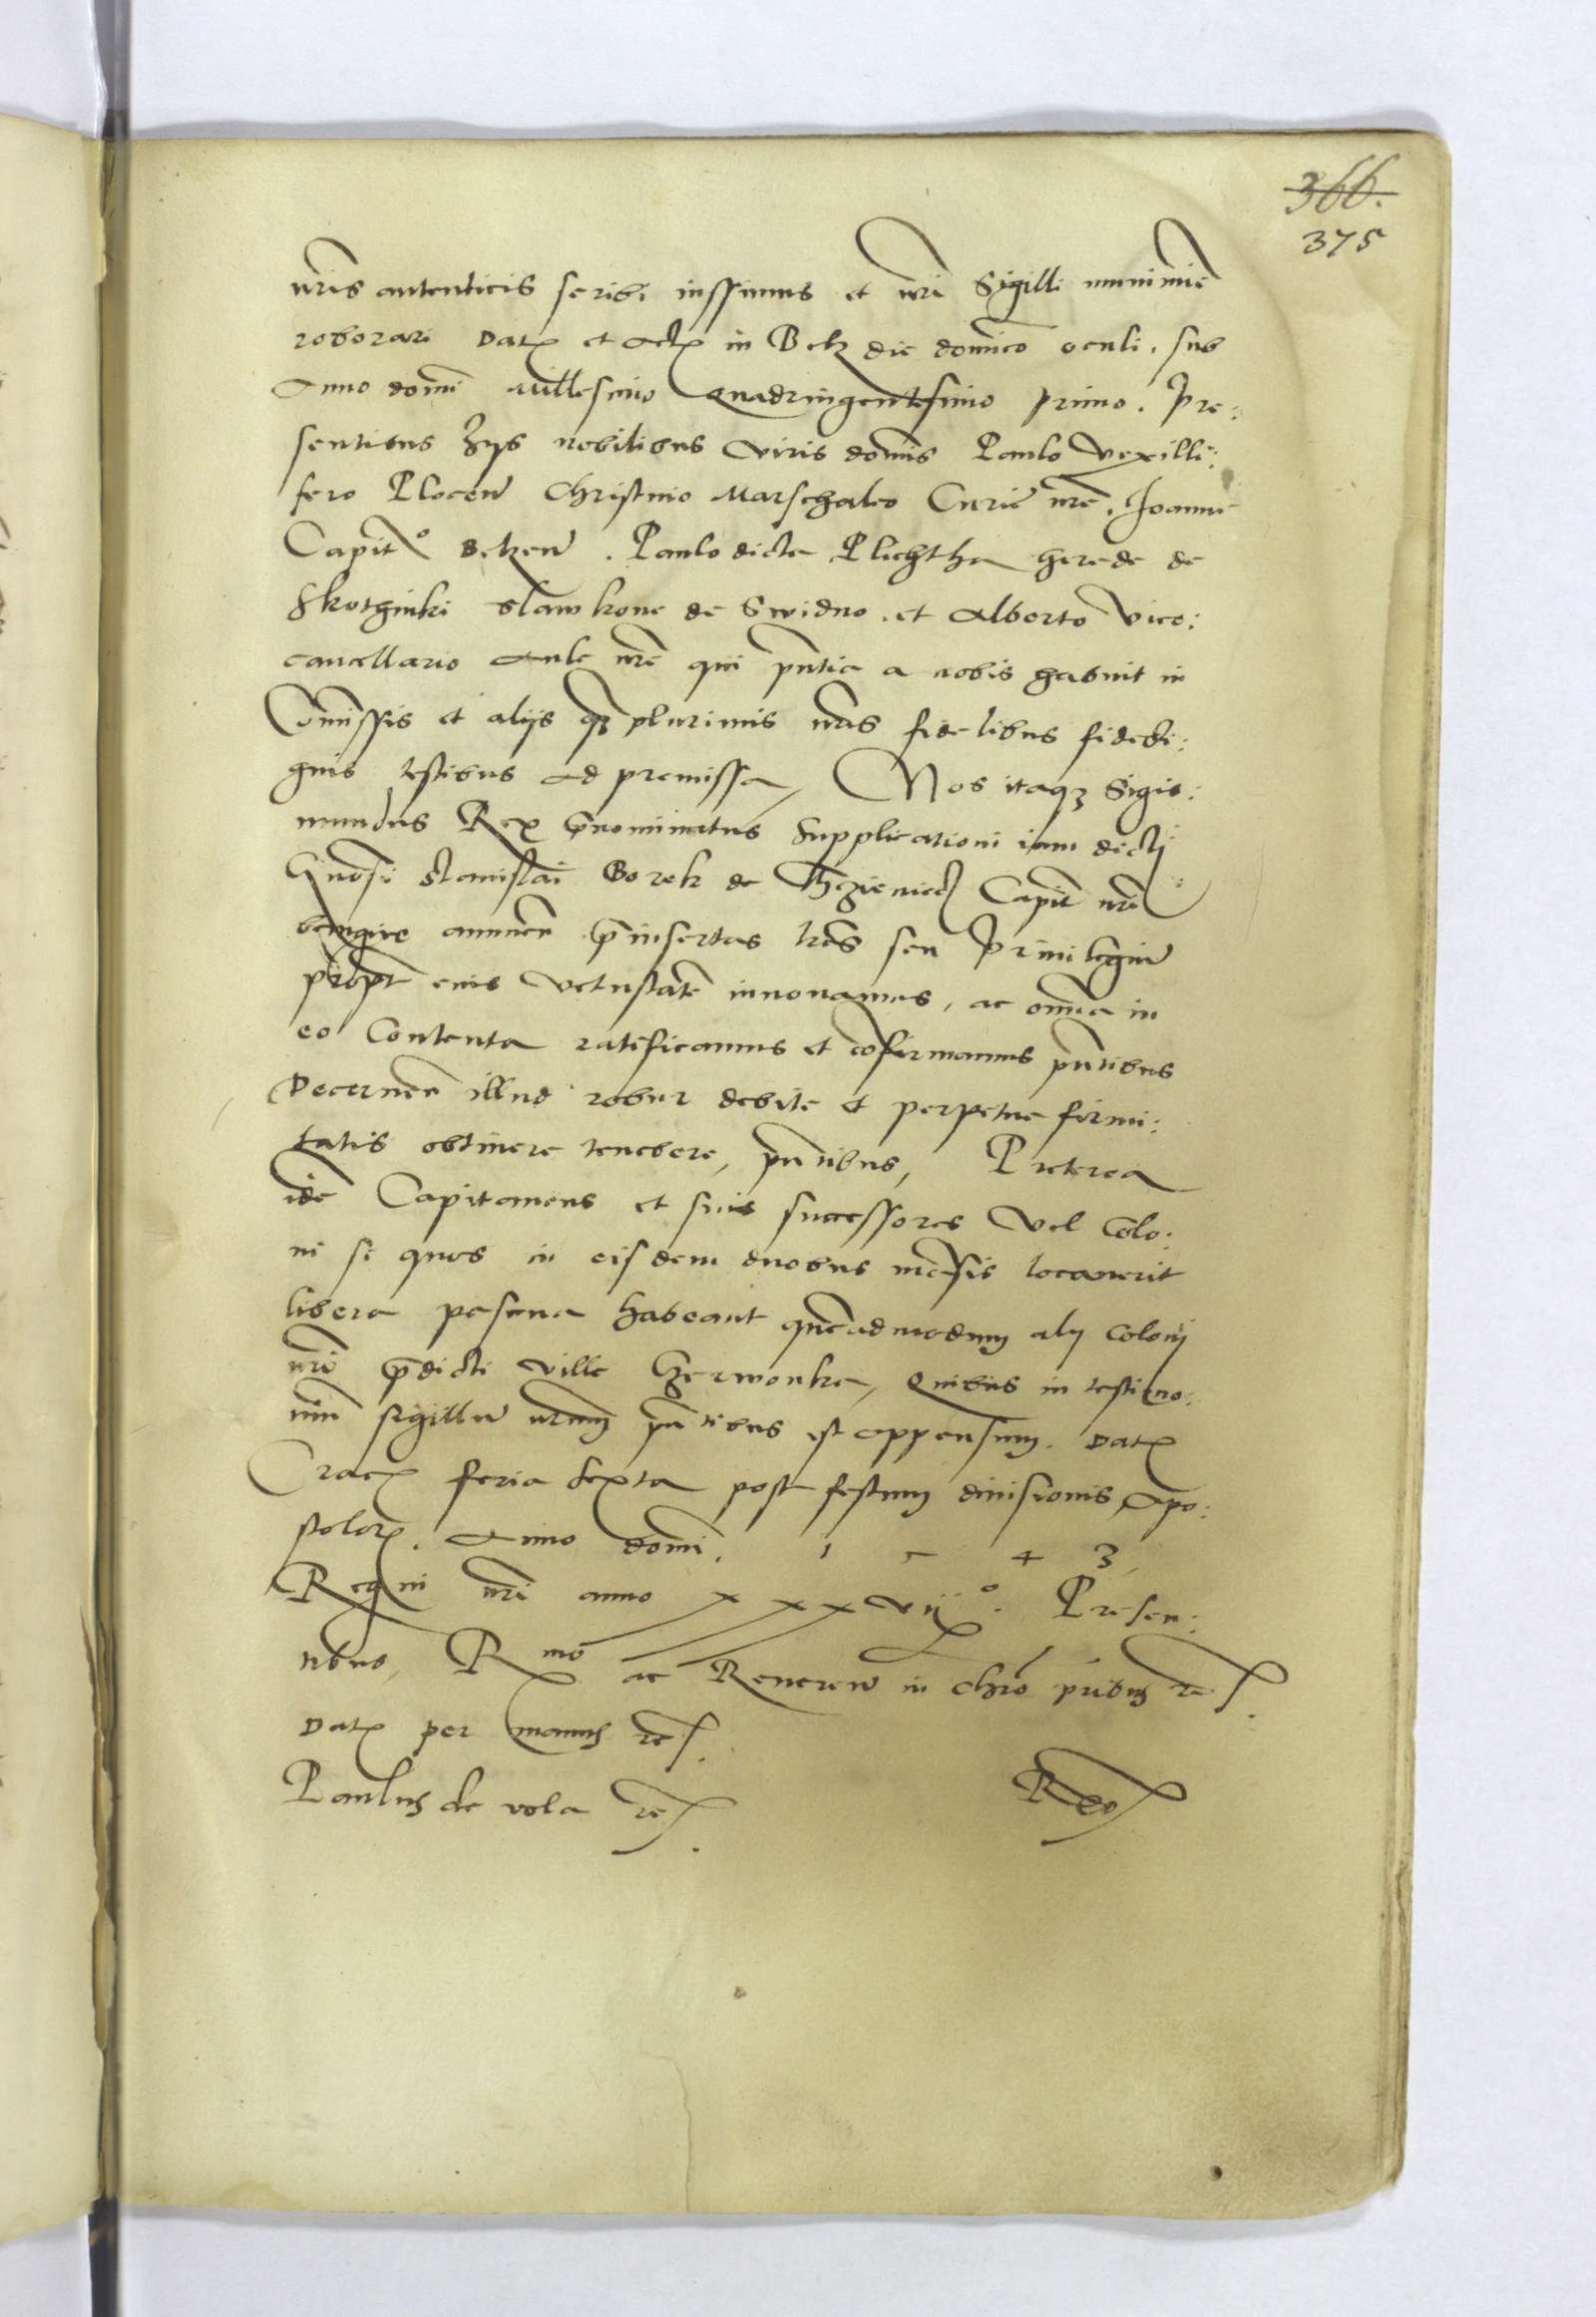 366.
375
nr̃is autenticis scribi iussimus et nr̃i Sigilli munimiē
roborari Datȝ et Actȝ in Belz die dominico oculi. sub
Anno domĩ Millesimo Quadringentesimo primo. Pre:
sentibus hys nobilibus viris domĩs Paulo vexilli:
fero Plocen̄ Christino Marschalco Curie nr̃e. Joanne
Capitȝ° Belzen̄. Paulo dicto Plichtha herede de
Slawkone de Swidno. et Alberto vice:
cancellario Aule nr̃e qui pñtia a nobis habuit in
Com̃issis et alijs qȝ plurimis nr̃is fidelibus fidedi:
gnis testibus ad premissa, Nos itaqȝ Sigis:
mundus Rex prenominatus Supplicationi iam dicti
Gnõsi Stanislai Borek de Capit̃ nr̃i
benigne annuen̄ preinsertas lr̃as seu Priuilegiū
propt̃ eius vetustatē innouamus, ac om̃ia in
eo Contenta ratificamus et cõfirmamus pñtibus
Decernen̄ illud robur debite et perpetue firmi:
tatis obtinere tenebere, pñtibus, Preterea
idē Capitaneus et suis successores vel Colo:
ni si quos in eisdem duobus mãsis locauerit
libera pascua habeant quẽadmodum alij Colonj
nr̃i predicti ville Czerwonka, Quibus in testimo:
niũ sigillũ nr̃um pñtibus est appensum. Datȝ
Cracȝ feria sexta post festum diuisionis Apo:
stolorȝ. Anno domĩ. 1 5 4 3,
Regni nr̃i anno xxxvij°. Presen:
tibus, Rmo ac Reueren̄ in chr̃o pr̃ibus etc.
Datȝ per manus etc.
Paulus de vola etc. Rtio